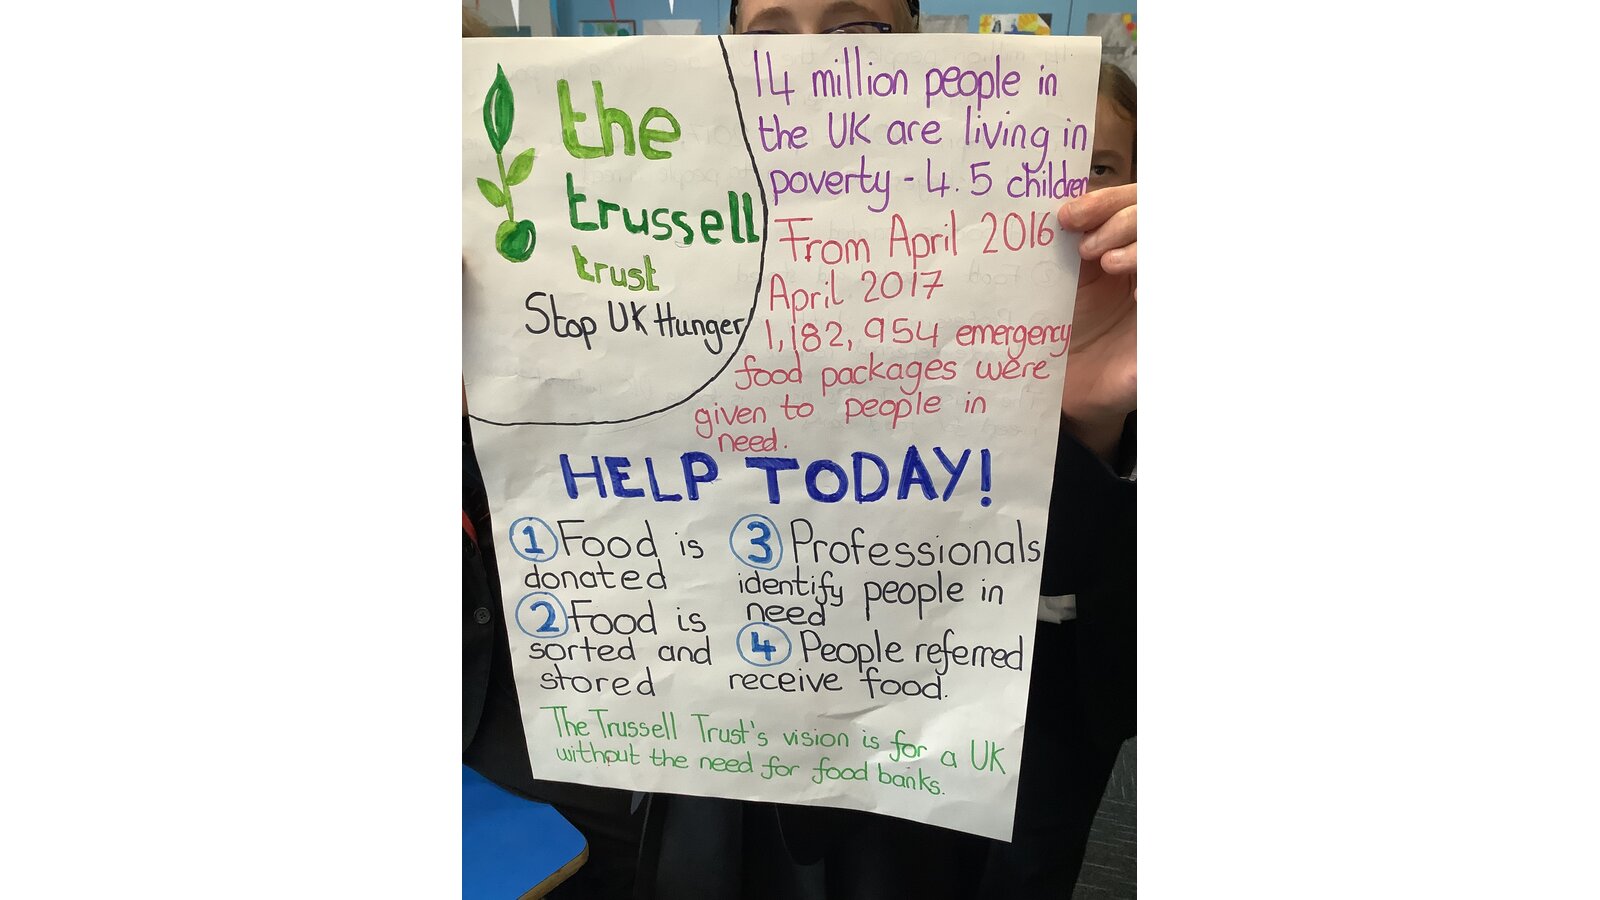 the
trussell
trust
Stop UK Hunger
14 million people in
the UK are living in
poverty - 4.5 children
From April 2016
April 2017
1,182,954 emergency
food packages were
given to people in
need.
HELP TODAY!
1 Food is
donated
2 Food is
sorted and
stored
3 Professionals
identify people in
need
4 People referred
receive food.
The Trussell Trust's vision is for a UK
without the need for food banks.